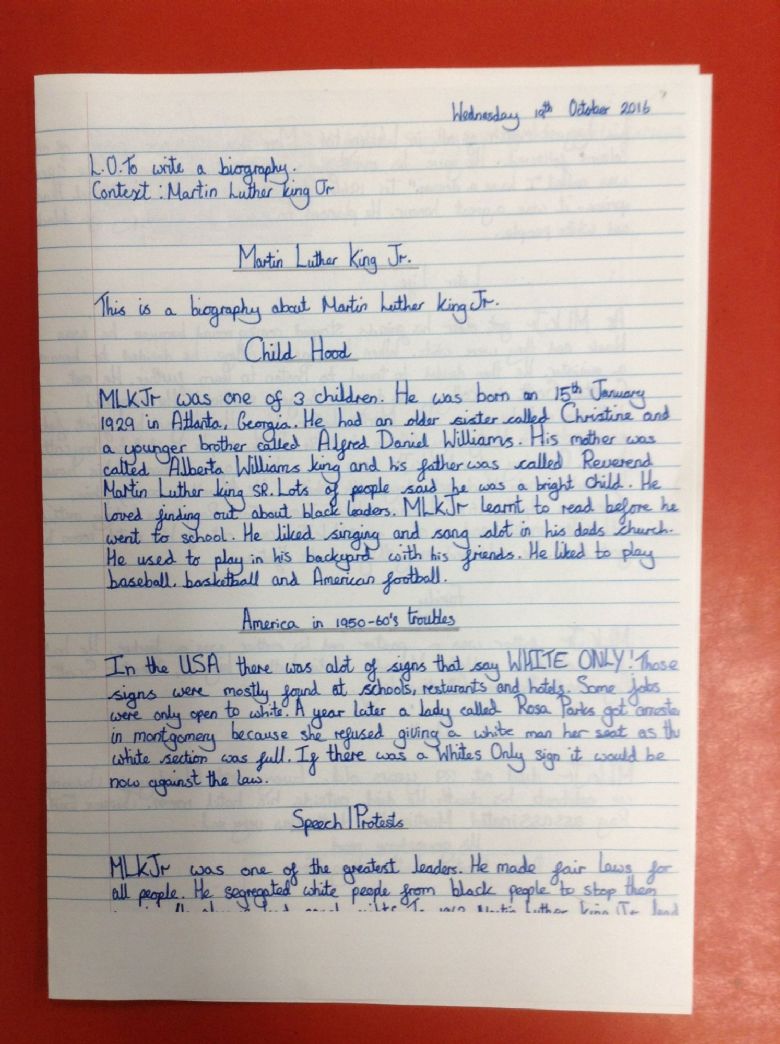 Wednesday 19th October 2016
L.O. To write a biography.
Context : Martin Luther king Jr
Martin Luther King Jr.
This is a biography about Martin Luther king Jr.
Child Hood
MLKJr was one of 3 children. He was born on 15th January
1929 in Atlanta, Georgia. He had an older sister called Christine and
a younger brother called Alfred Daniel Williams. His mother was
called Alberta Williams king and his father was called Reverend
Martin Luther king SR. Lots of people said he was a bright child. He
loved finding out about black leaders. MLKJr learnt to read before he
went to school. He liked singing and sang alot in his dads church.
He used to play in his backyard with his friends. He liked to play
baseball, basketball and American football.
America in 1950-60's troubles
In the USA there was alot of signs that say WHITE ONLY! Those
signs were mostly found at schools, resturants and hotels. Some jobs
were only open to white. A year later a lady called Rosa Parks got
in montgomery because she refused giving a white man her seat as
white section was full. If there was a Whites Only sign it would be
now against the law.
Speech/Protests
MLKJr was one of the greatest leaders. He made fair laws for
all people. He segregated white people from black people to stop them
Martin Luther king Jr